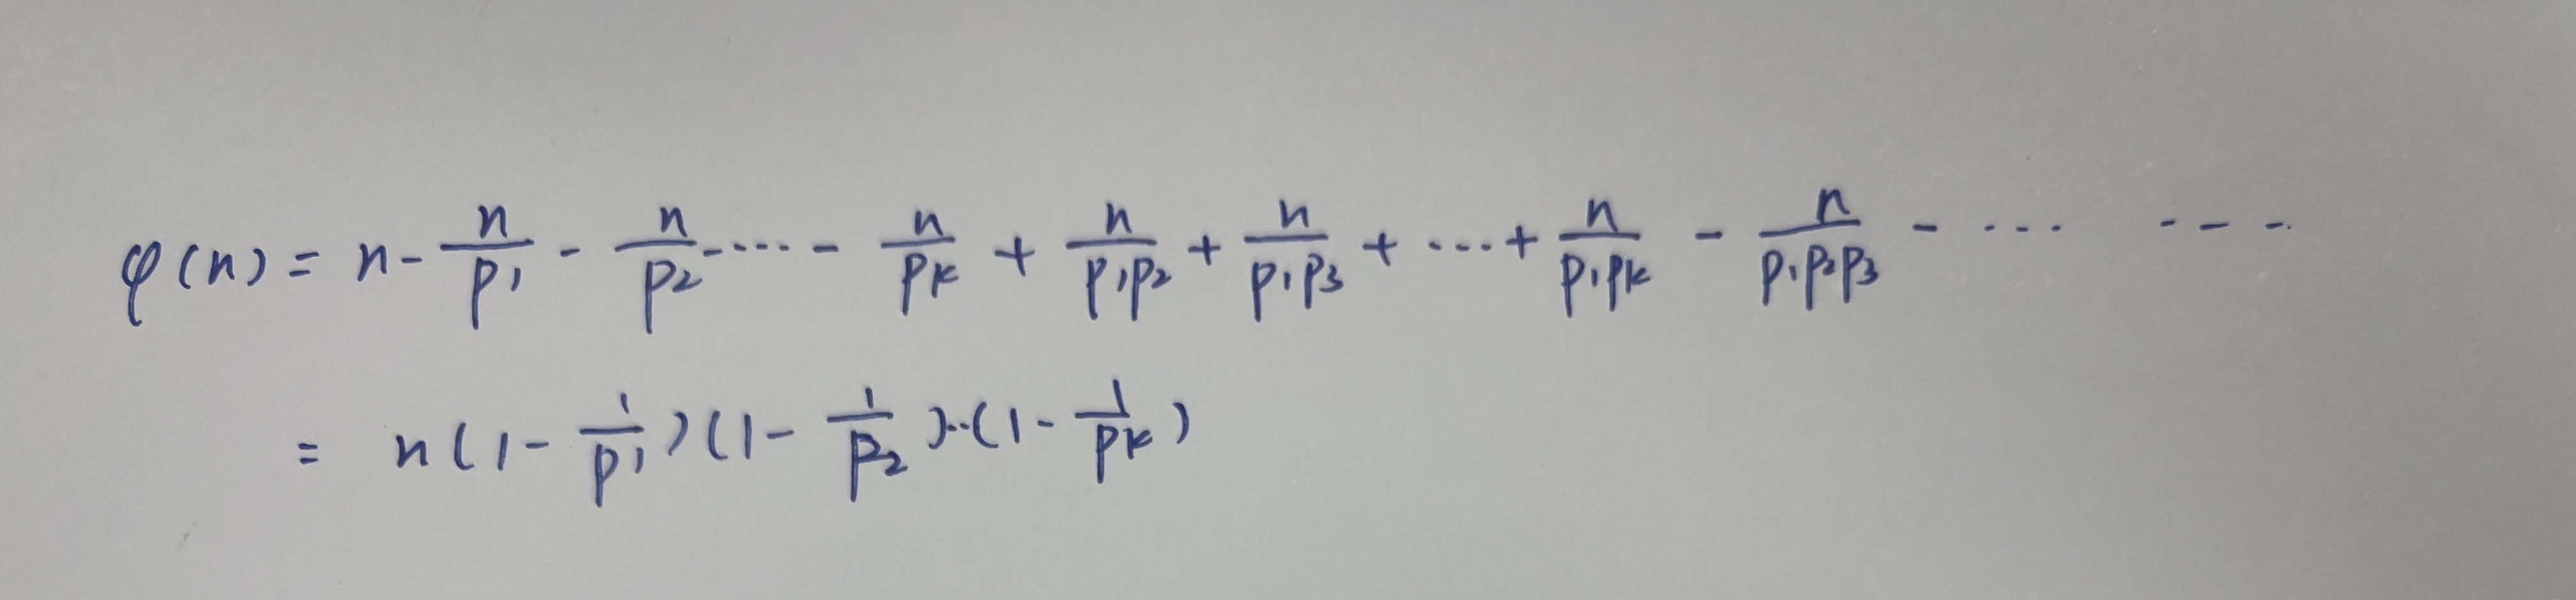 φ(n) = n - n/p1 - n/p2 - ···· - n/pk + n/p1p2 + n/p1p3 + ··· + n/p1pk - n/p1p2p3 - ··· ----
= n(1 - 1/p1)(1 - 1/p2)··(1 - 1/pk)